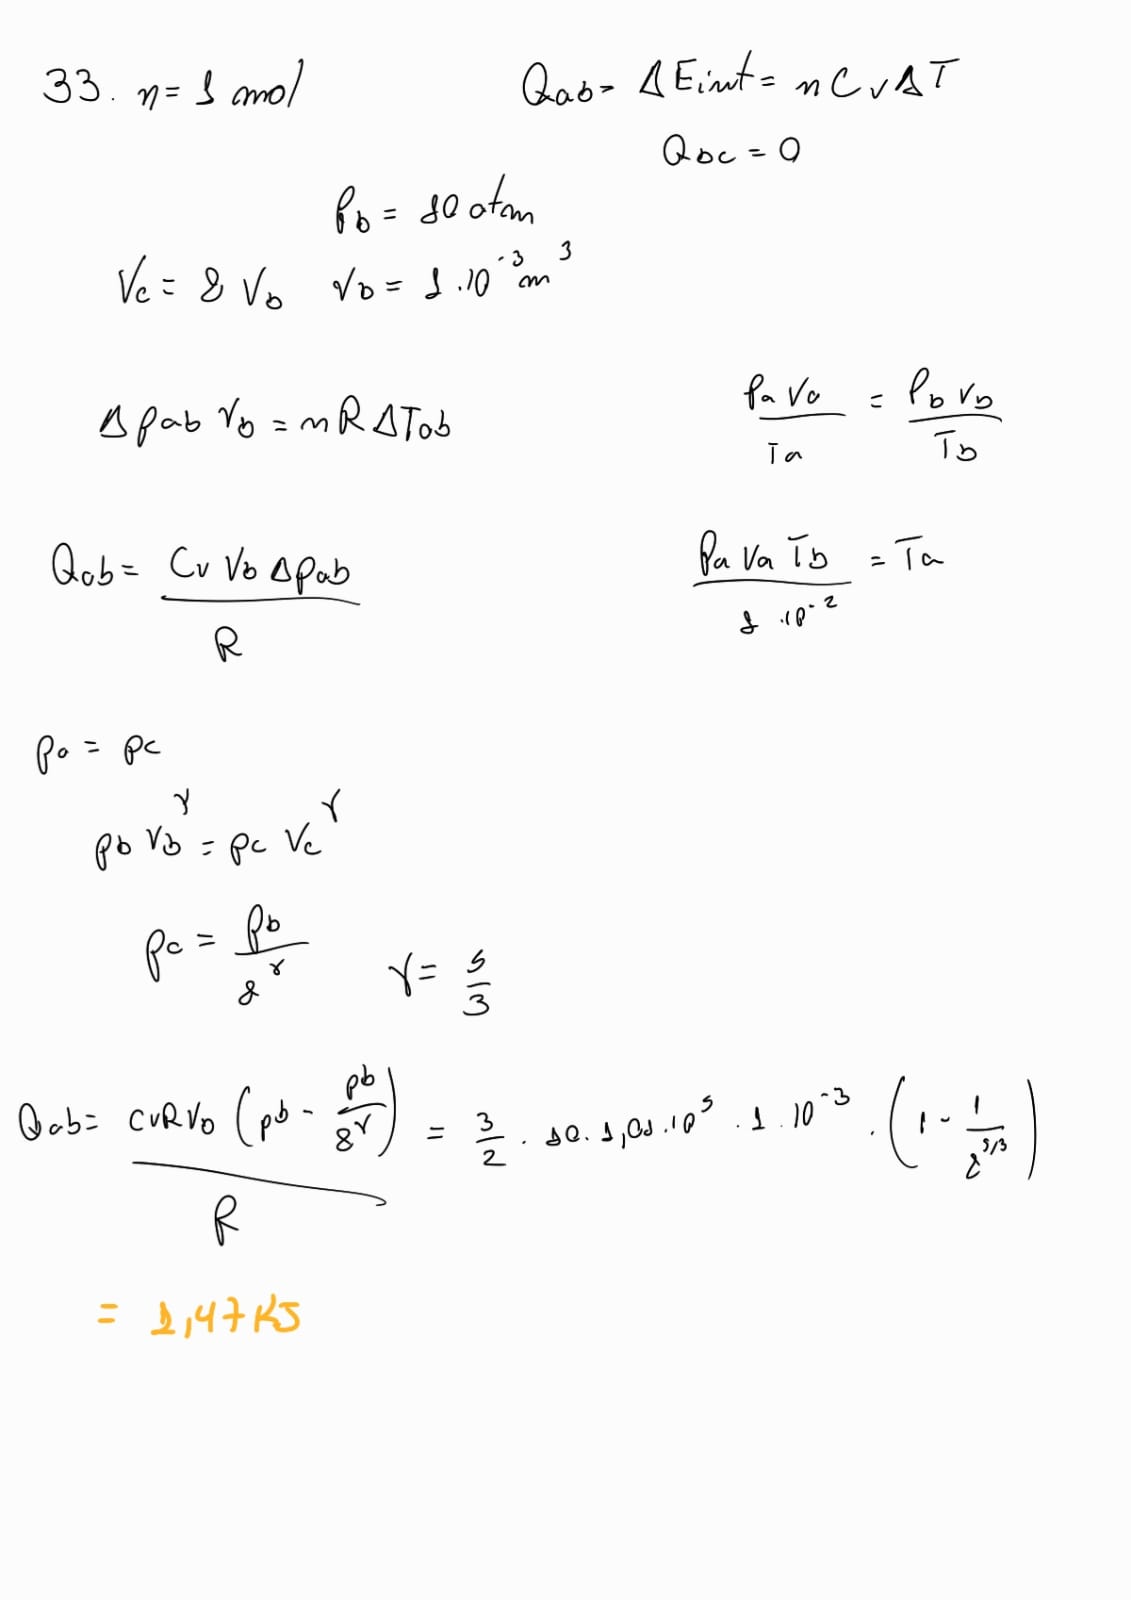 33. n = 1 mol
Qab = ΔEint = n Cv ΔT
Qbc = 0
Pb = 10 atm
Vc = 8 Vb
Vb = 1 . 10^-3 m^3
Δpab Vb = nRΔTab
Pa Va / Ta = Pb Vb / Tb
Qab = Cv Vb Δpab / R
Pa Va Tb / 1 . 10^-2 = Ta
pa = pc
pb Vb^γ = pc Vc^γ
pc = pb / 8^γ
γ = 5/3
Qab = CvRVb (pb - pb/8^γ) / R = 3/2 . 10 . 1,01 . 10^5 . 1 . 10^-3 . (1 - 1/8^5/3)
= 1,47 KJ